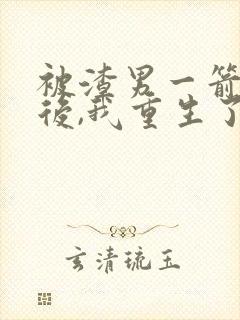 被渣男一箭
後,我重生了
玄清琉玉